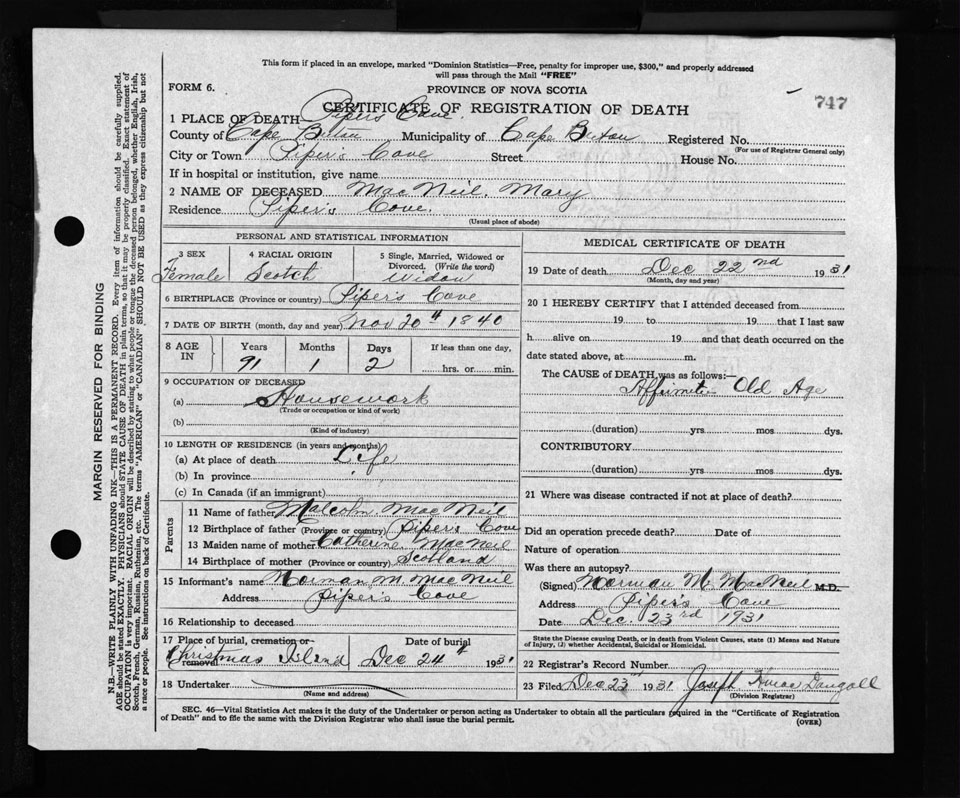 This form if placed in an envelope, marked "Dominion Statistics—Free, penalty for improper use, $300," and properly addressed
will pass through the Mail "FREE"
FORM 6.
PROVINCE OF NOVA SCOTIA
CERTIFICATE OF REGISTRATION OF DEATH
747
1 PLACE OF DEATH— Piper's Cove.
County of Cape Breton Municipality of Cape Breton Registered No.
(For use of Registrar General only)
City or Town Piper's Cove Street House No.
If in hospital or institution, give name
2 NAME OF DECEASED MacNeil, Mary
Residence Piper's Cove.
(Usual place of abode)
PERSONAL AND STATISTICAL INFORMATION
3 SEX 4 RACIAL ORIGIN 5 Single, Married, Widowed or Divorced. (Write the word)
Female Scotch Widow
6 BIRTHPLACE (Province or country) Piper's Cove
7 DATE OF BIRTH (month, day and year) Nov 20th 1840
8 AGE IN Years Months Days If less than one day,
91 1 2 hrs. or min.
9 OCCUPATION OF DECEASED
(a) Housework
(Trade or occupation or kind of work)
(b)
(Kind of industry)
10 LENGTH OF RESIDENCE (in years and months)
(a) At place of death Life
(b) In province
(c) In Canada (if an immigrant)
Parents
11 Name of father Malcolm MacNeil
12 Birthplace of father (Province or country) Piper's Cove
13 Maiden name of mother Catherine MacNeil
14 Birthplace of mother (Province or country) Scotland
15 Informant's name Norman M. MacNeil
Address Piper's Cove
16 Relationship to deceased
17 Place of burial, cremation or removal Date of burial
Christmas Island Dec 24th 1931
18 Undertaker
(Name and address)
MEDICAL CERTIFICATE OF DEATH
19 Date of death Dec 22nd 1931
(Month, day and year)
20 I HEREBY CERTIFY that I attended deceased from
19 to 19 that I last saw
h alive on 19 and that death occurred on the
date stated above, at m.
The CAUSE of DEATH was as follows:—
Old Age
(duration) yrs mos dys.
CONTRIBUTORY
(duration) yrs mos dys.
21 Where was disease contracted if not at place of death?
Did an operation precede death? Date of
Nature of operation
Was there an autopsy?
(Signed) Norman M. MacNeil M.D.
Address Piper's Cove
Date Dec. 23rd 1931
State the Disease causing Death, or in death from Violent Causes, state (1) Means and Nature
of Injury, (2) whether Accidental, Suicidal or Homicidal.
22 Registrar's Record Number
23 Filed Dec 23rd 1931 Joseph
(Division Registrar)
SEC. 46—Vital Statistics Act makes it the duty of the Undertaker or person acting as Undertaker to obtain all the particulars required in the "Certificate of Registration
of Death" and to file the same with the Division Registrar who shall issue the burial permit.
(OVER)
MARGIN RESERVED FOR BINDING
N.B.—WRITE PLAINLY WITH UNFADING INK—THIS IS A PERMANENT RECORD. Every item of information should be carefully supplied.
AGE should be stated EXACTLY. PHYSICIANS should STATE CAUSE OF DEATH in plain terms, so that it may be properly classified. Exact statement of
OCCUPATION is very important. RACIAL ORIGIN will be described by stating to what people or tongue the deceased person belonged, whether English, Irish,
Scotch, French, German, Russian, Ruthenian, etc. The terms "AMERICAN" or "CANADIAN" SHOULD NOT BE USED as they express citizenship but not
a race or people. See instructions on back of Certificate.